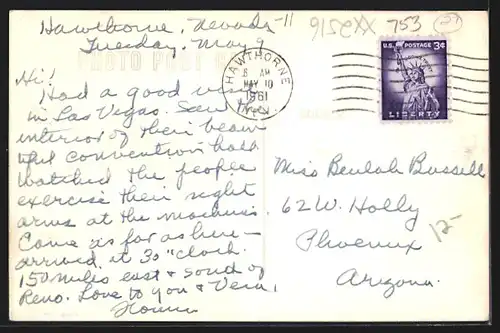 Hawthorne, Nevada -11
Tuesday, May 9
PHOTO POST
Hi!
Had a good visit
in Las Vegas. Saw the
interior of their beau
tiful convention hall
Watched the people
exercise their right
arms at the machines.
Came as far as here -
arrived at 3 o"clock.
150 miles east & south of
Reno. Love to you & Vera,
HAWTHORNE
AM
MAY 10
1961
NEV.
915CXX 753
U.S. POSTAGE 3¢
LIBERTY
Miss Beulah Bussell
62 W. Holly
Phoenix
Arizona.
12-